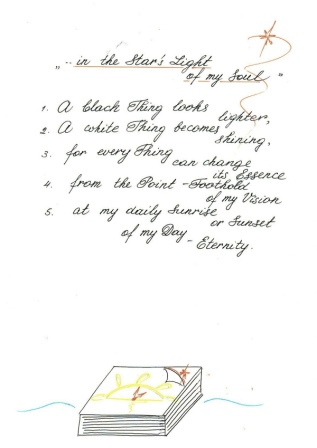 „-- in the Star's Light
of my Soul "
1. A black Thing looks
lighter,
2. A white Thing becomes
shining,
3. for every Thing
can change
its Essence
4. from the Point - Foothold
of my Vision
5. at my daily Sunrise
or Sunset
of my Day
- Eternity.